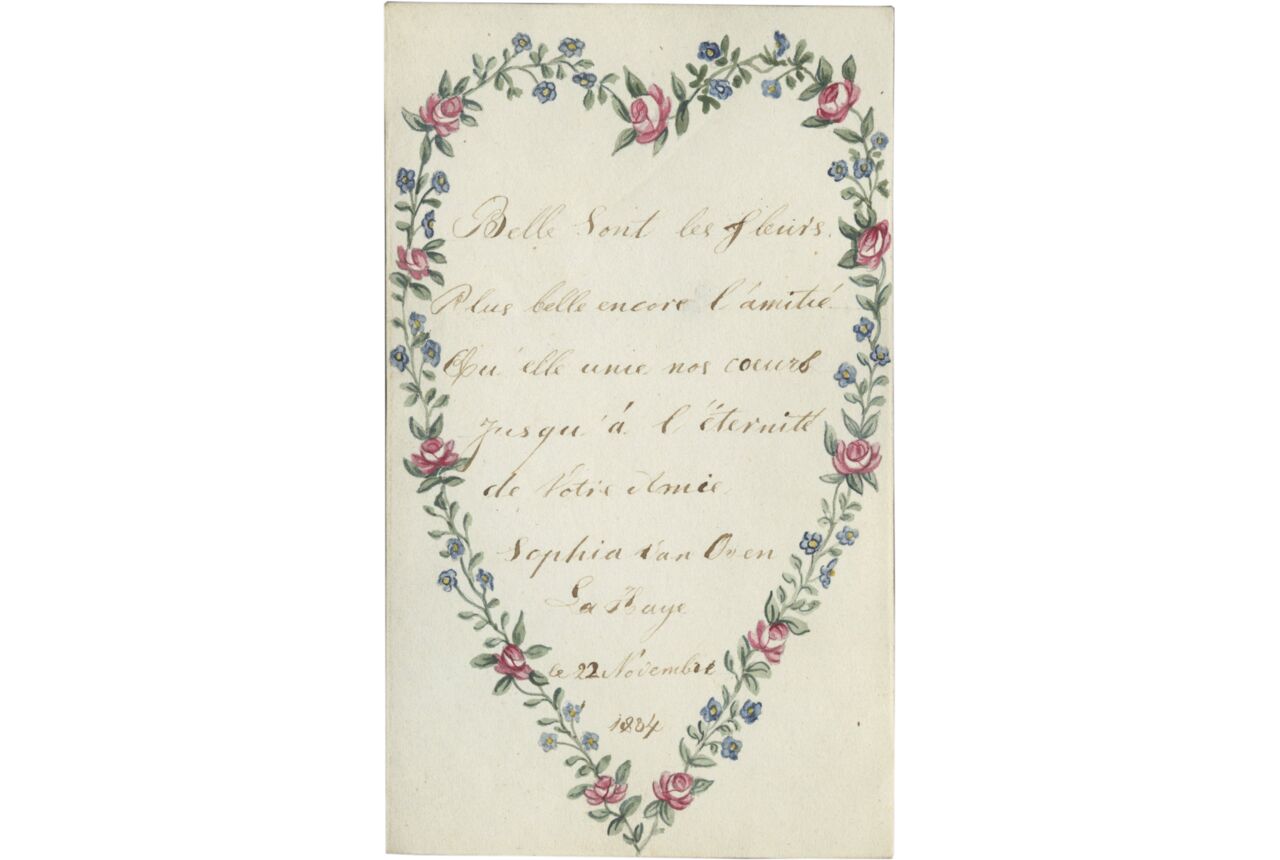 Belle Sont les fleurs.
Plus belle encore l'amitié
Qu'elle unie nos coeurs
Jusqu'á l'éternité
de Votre Amie
Sophia Van Oven
La Haye
le 22 Novembre
1834